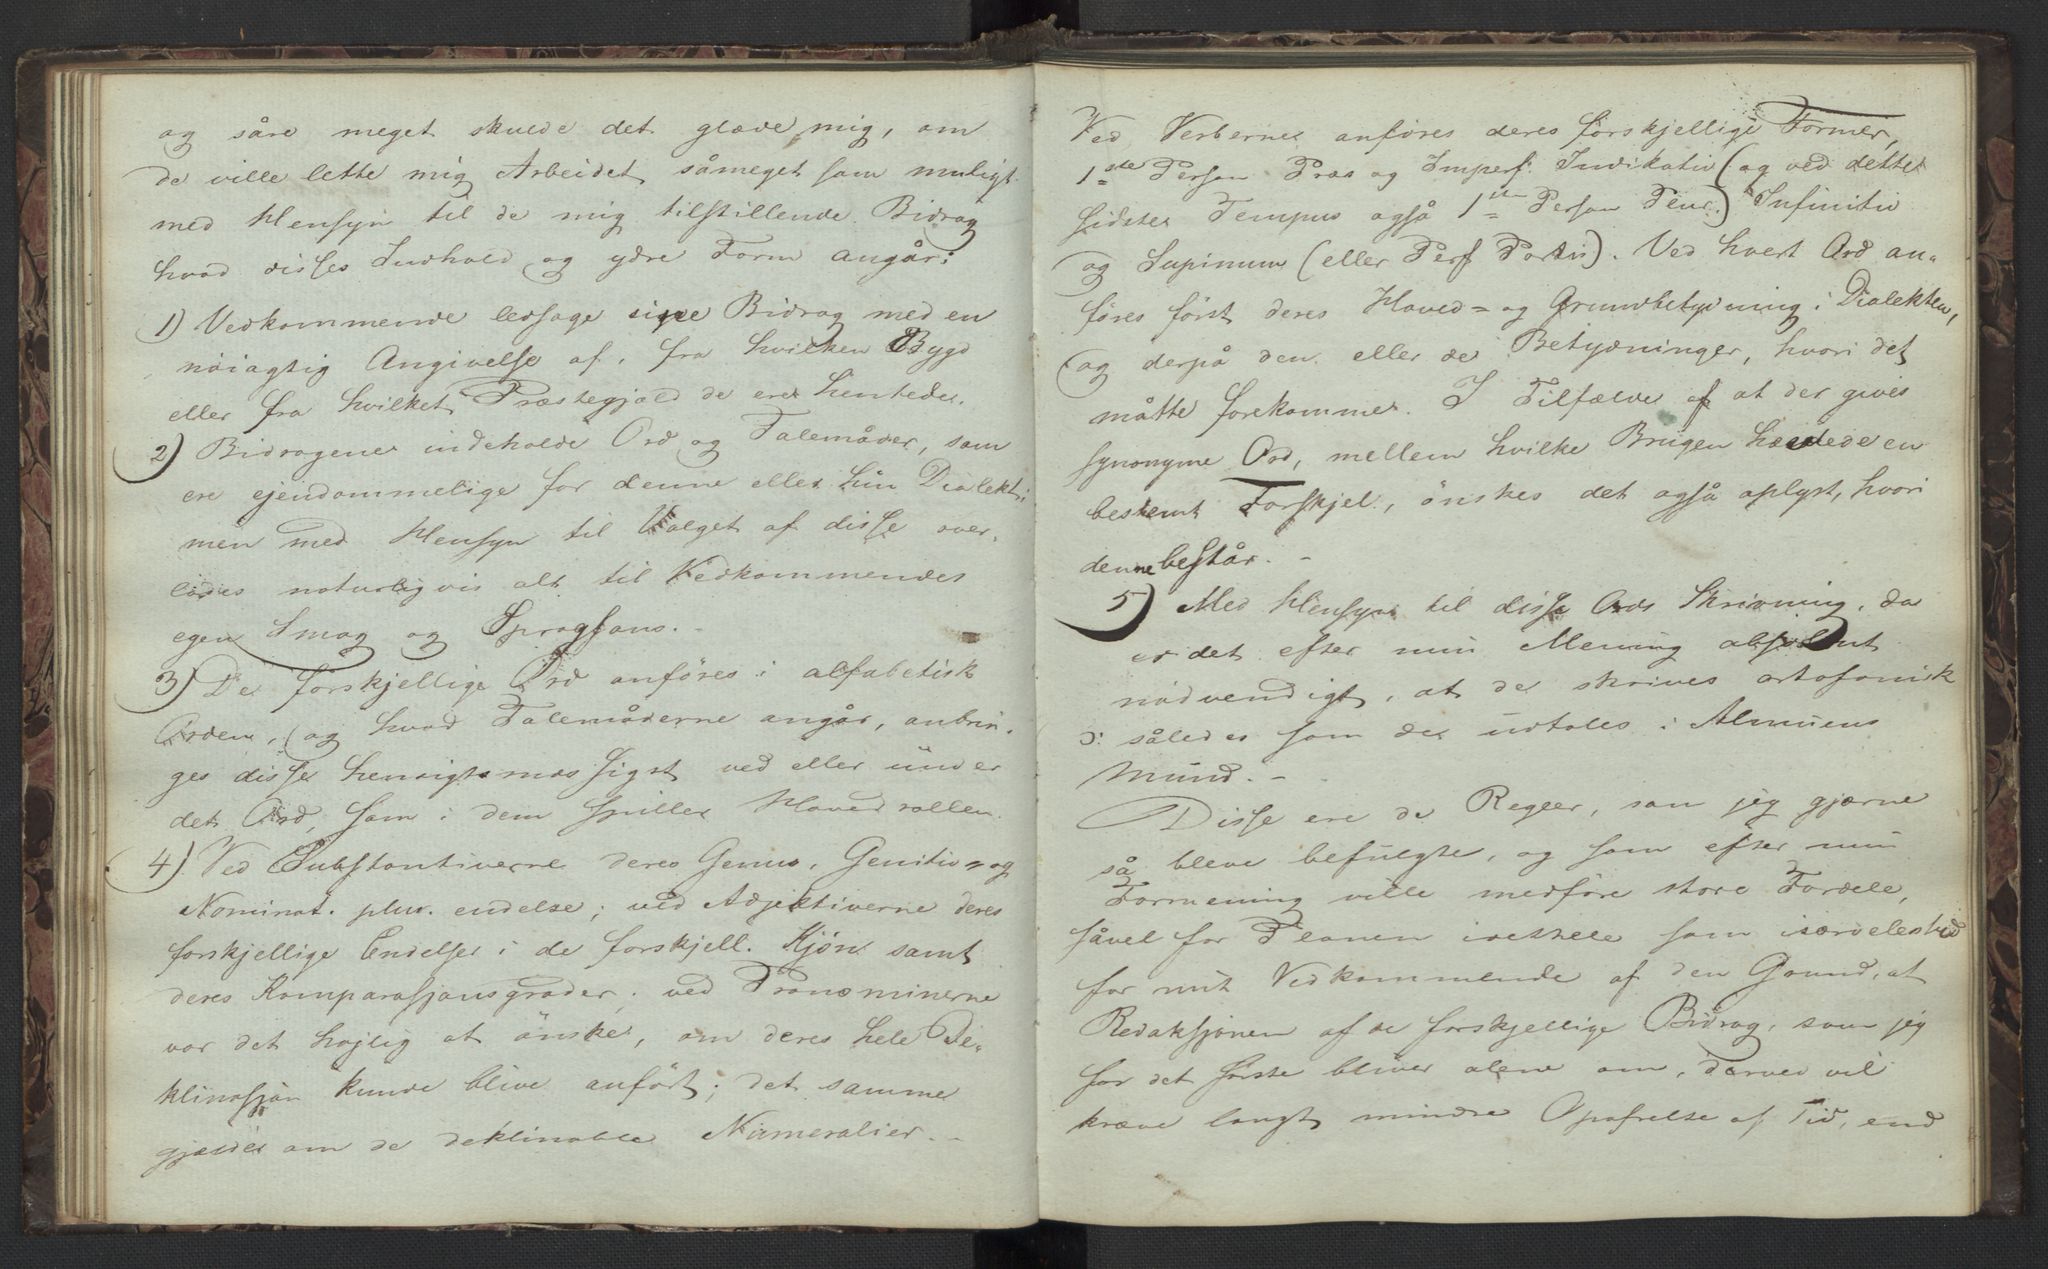 og såre meget skulde det glæde mig, om
de ville lette mig Arbeidet såmeget som muligt
med Hensyn til de mig tilstillende Bidrag
hvad disses Indhold og ydre Form angår:
1) Vedkommende ledsage sine Bidrag med en
nöiagtig Angivelse af, fra hvilken Bygd
eller fra hvilket Præstegjæld de ere hentede.
2) Bidragene indeholde Ord og Talemåder, som
ere ejendommelige for denne eller hin Dialekt;
men med Hensyn til Valget af disse over-
lades naturligvis alt til Vedkommendes
egen Smag og Sprogsans. -
3) De forskjellige Ord anföres i alfabetisk
Orden, og hvad Talemåderne angår, anbrin-
ges disse hensigtsmæssigst ved eller under
det Ord, som i dem spiller Hovedrollen.
4) Ved Substantiverne deres Genus, Genitiv = og
Nominat. plur. endelse; ved Adjektiverne deres
forskjellige Endelser i de forskjell. Kjøn samt
deres Komparasjonsgrader; ved Pronominerne
var det højlig at önske, om deres hele De-
klinasjon kunde blive anfört; det samme
gjælder om de deklinable Numeralier. -
Ved Verberne anföres deres forskjellige Former,
1ste Person Præs og Imperf. Indikativ (og ved dette
sidste Tempus også 1ste Person Plur.) Infinitiv
og Supinum (eller Perf Partis). Ved hvert Ord an-
föres först deres Hoved = og Grundbetydning i Dialekten,
og derpå den eller de Betydninger, hvori det
måtte forekomme. I Tilfælde af at der gives
synonyme Ord, mellem hvilke Brugen hævdede en
bestemt Forskjel, önskes det også oplyst, hvori
denne består. -
5) Med Hensyn til disse Ords Skrivning, da
er det efter min Mening absolut
nödvendigt, at de skrives ortofonisk
ɔ: således som de udtales i Almuens
Mund. -
Disse ere de Regler, som jeg gjærne
så bleve befulgte, og som efter min
Formening ville medföre store Fordele,
såvel for Planen idethele som isærdeleshed
for mit Vedkommende af den Grund, at
Redaksjonen af de forskjellige Bidrag, som jeg
for det förste bliver alene om, derved vil
kræve langt mindre Opofrelse af Tid, end